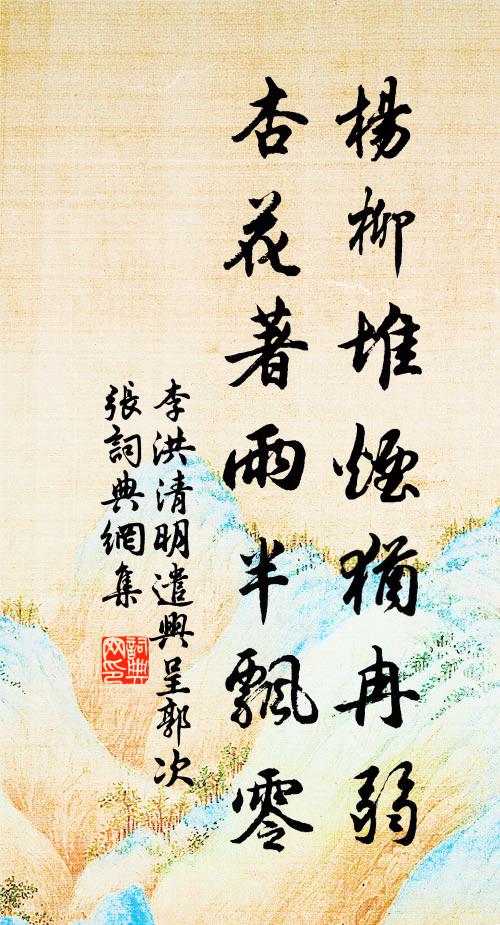 楊柳堆煙猶冉弱
杏花著雨半飄零
李洪清明遣興呈郭次
張詞典網集
詞典網印